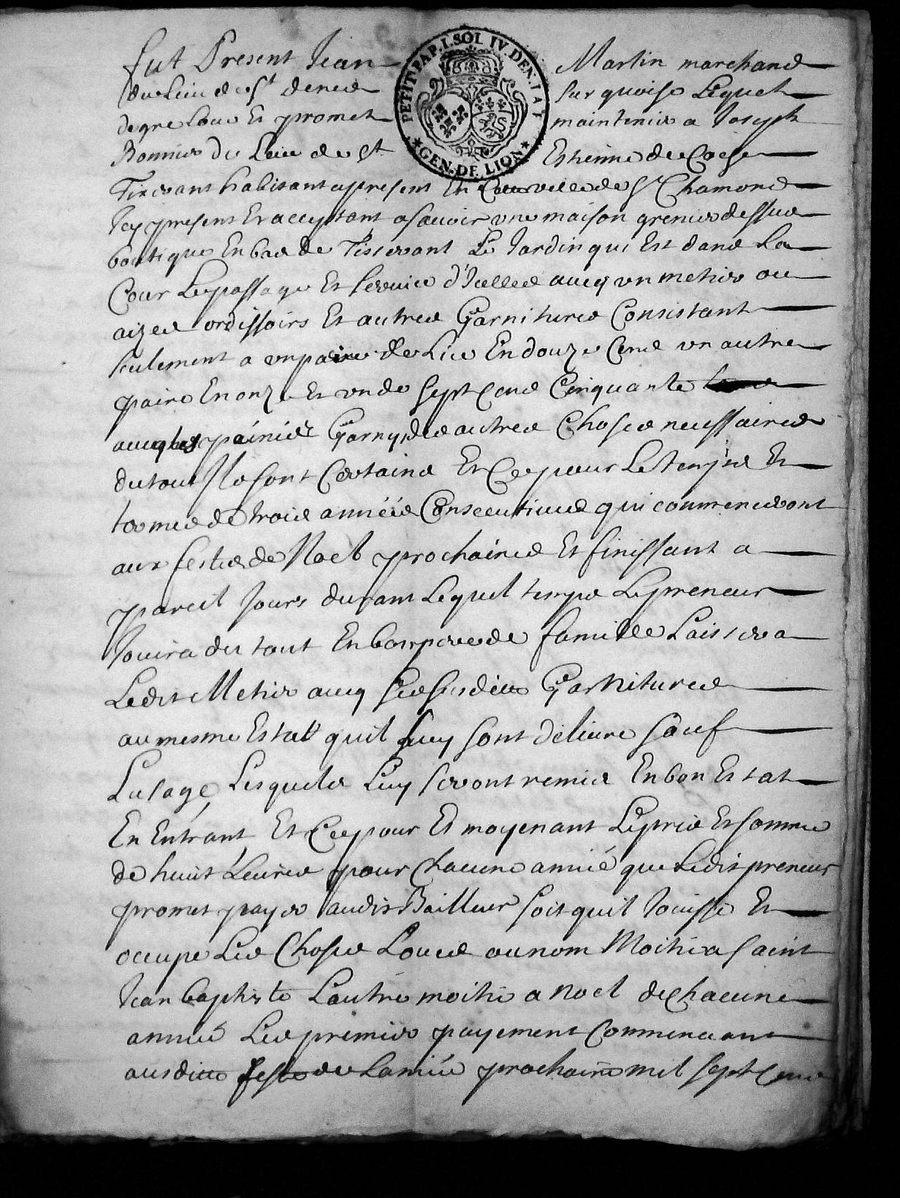 PETIT PAP. I. SOL IV. DEN. LA F
GEN. DE LION
fut Present Jean Martin marchand
du Lieu de st denis sur quoise Lequel
de gre Loue Et promet maintenir a Joseph
Bonnier du Lieu de st Estienne de Coese
Tisserant habitant apresent En ville de st Chamond
Icy present Et acceptant a scavoir une maison grenier dessus
boutique En bas de Tisserant Le Jardin qui Est dans La
Cour Le passage Et service d'Icelle avecq un metier ou
aizes ordissoirs Et autres Garnitures Consistant
seulement a un paire de Lice En douze Cens un autre
paire En onze Et un de sept Cens Cinquante
avecq les Garnys de autres Choses necessaires
du tout Ils sont Certains Et Ce pour Le temps Et
terme de trois années Consecutives qui commenceront
aux festes de Noel prochaines Et finissant a
pareil Jours durant Lequel temps Le preneur
Jouira du tout En bon pere de famille Laissera
Ledit Metier avecq Ses susdittes Garnitures
au mesme Estat quil Luy sont delivré sauf
Lusage Lesquels Luy seront remis En bon Estat
En Entrant Et Ce pour Et moyenant Le prix Et somme
de huit Livres pour Chacune année que Ledit preneur
promet payer audit Bailleur soit quil Jouisse Et
occupe Les Choses Louées ou non Moitié a saint
Jean baptiste Lautre moitié a noel de Chacune
année Les premier payement Commencant
ausdittes festes de Lannée prochaine mil sept Cens